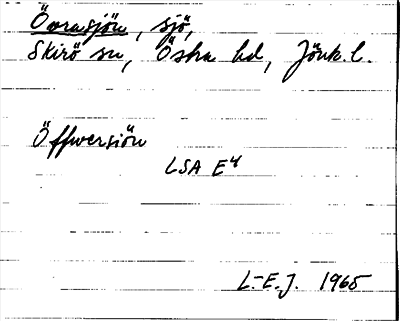 Övrasjön, sjö,
Skirö sn, Östra hd, Jönk. l.
Öffwersiön
LSA E4
L-E.J. 1965